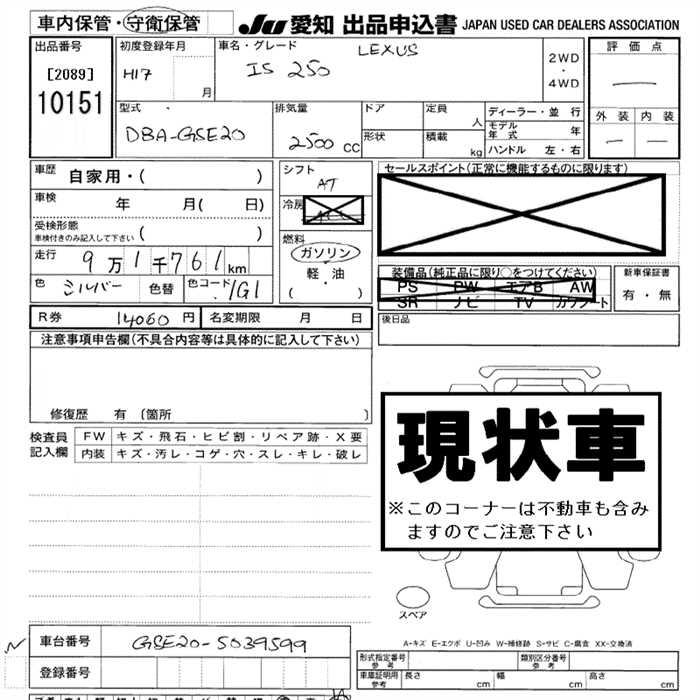 車内保管・守衛保管
JU 愛知 出品申込書 JAPAN USED CAR DEALERS ASSOCIATION
出品番号
[2089]
10151
初度登録年月
H17
月
車名・グレード
LEXUS
IS 250
2WD
・
4WD
評価点
外装 内装
型式
DBA-GSE20
排気量
2500 CC
ドア
形状
定員
人
積載
kg
ディーラー・並行
モデル年式 年
ハンドル 左・右
車歴
自家用・( )
車検
年 月( 日)
受検形態
車検付きのみ記入して下さい ( )
走行
9万1千761km
色 シルバー 色替 色コード 1G1
シフト
AT
冷房
燃料
ガソリン
・
軽・油
( )
セールスポイント(正常に機能するものに限ります)
装備品(純正品に限り○をつけてください)
PS PW エアB AW
SR ナビ TV カワシート
新車保証書
有・無
R券 14060 円 名変期限 月 日
後日品
注意事項申告欄(不具合内容等は具体的に記入して下さい)
修復歴 有(箇所 )
検査員
記入欄
FW キズ・飛石・ヒビ割・リペア跡・X要
内装 キズ・汚レ・コゲ・穴・スレ・キレ・破レ
現状車
※このコーナーは不動車も含み
ますのでご注意下さい
スペア
A-キズ E-エクボ U-凹み W-補修跡 S-サビ C-腐食 XX-交換済
車台番号 GSE20-5039599
登録番号
形式指定番号
参考
類別区分番号
参考
車庫証明用
参考
長さ cm 幅 cm 高さ cm